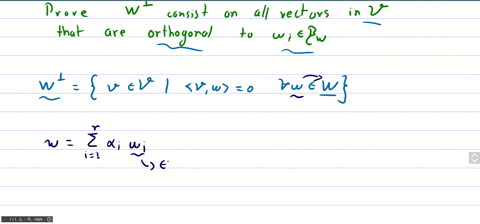 Prove W⊥ consist on all vectors in V
that are orthogonal to wᵢ ∈ βw
W⊥ = { v ∈ V | <v, w> = 0 ∀w ∈ W}
w = Σ αᵢ wᵢ
r
i=1
↳ ∈